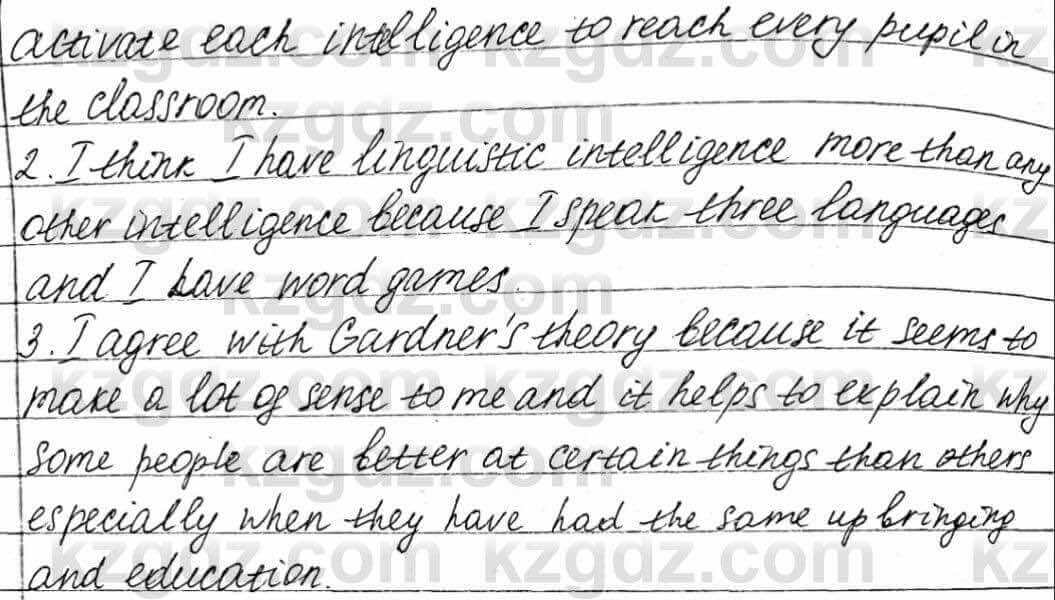 activate each intelligence to reach every pupil in
the classroom.
2. I think I have linguistic intelligence more than any
other intelligence because I speak three languages
and I have word games.
3. I agree with Gardner's theory because it seems to
make a lot of sense to me and it helps to explain why
some people are better at certain things than others
especially when they have had the same upbringing
and education.